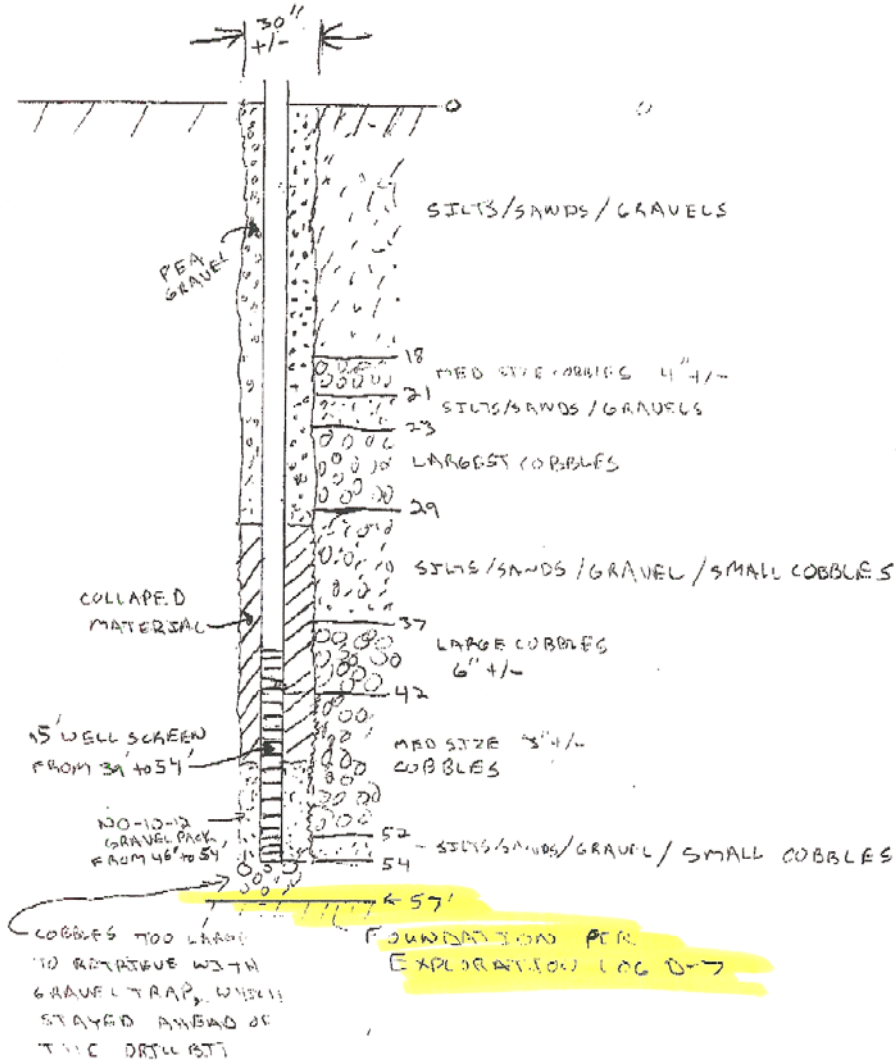 30"
+/-
0
SILTS/SANDS/GRAVELS
PEA
GRAVEL
18
MED SIZE COBBLES 4" +/-
21
SILTS/SANDS/GRAVELS
23
LARGEST COBBLES
29
SILTS/SANDS/GRAVEL/SMALL COBBLES
COLLAPED
MATERIAL
37
LARGE COBBLES
6" +/-
42
15' WELL SCREEN
FROM 39' to 54'
MED SIZE +/-
COBBLES
GRAVEL PACK
FROM 46' to 54'
52
SILTS/SANDS/GRAVEL/SMALL COBBLES
54
57'
FOUNDATION PER
EXPLORATION LOG D-7
COBBLES TOO LARGE
TO RETRIEVE WITH
GRAVEL TRAP, WHICH
STAYED AHEAD OF
THE DRILL BIT